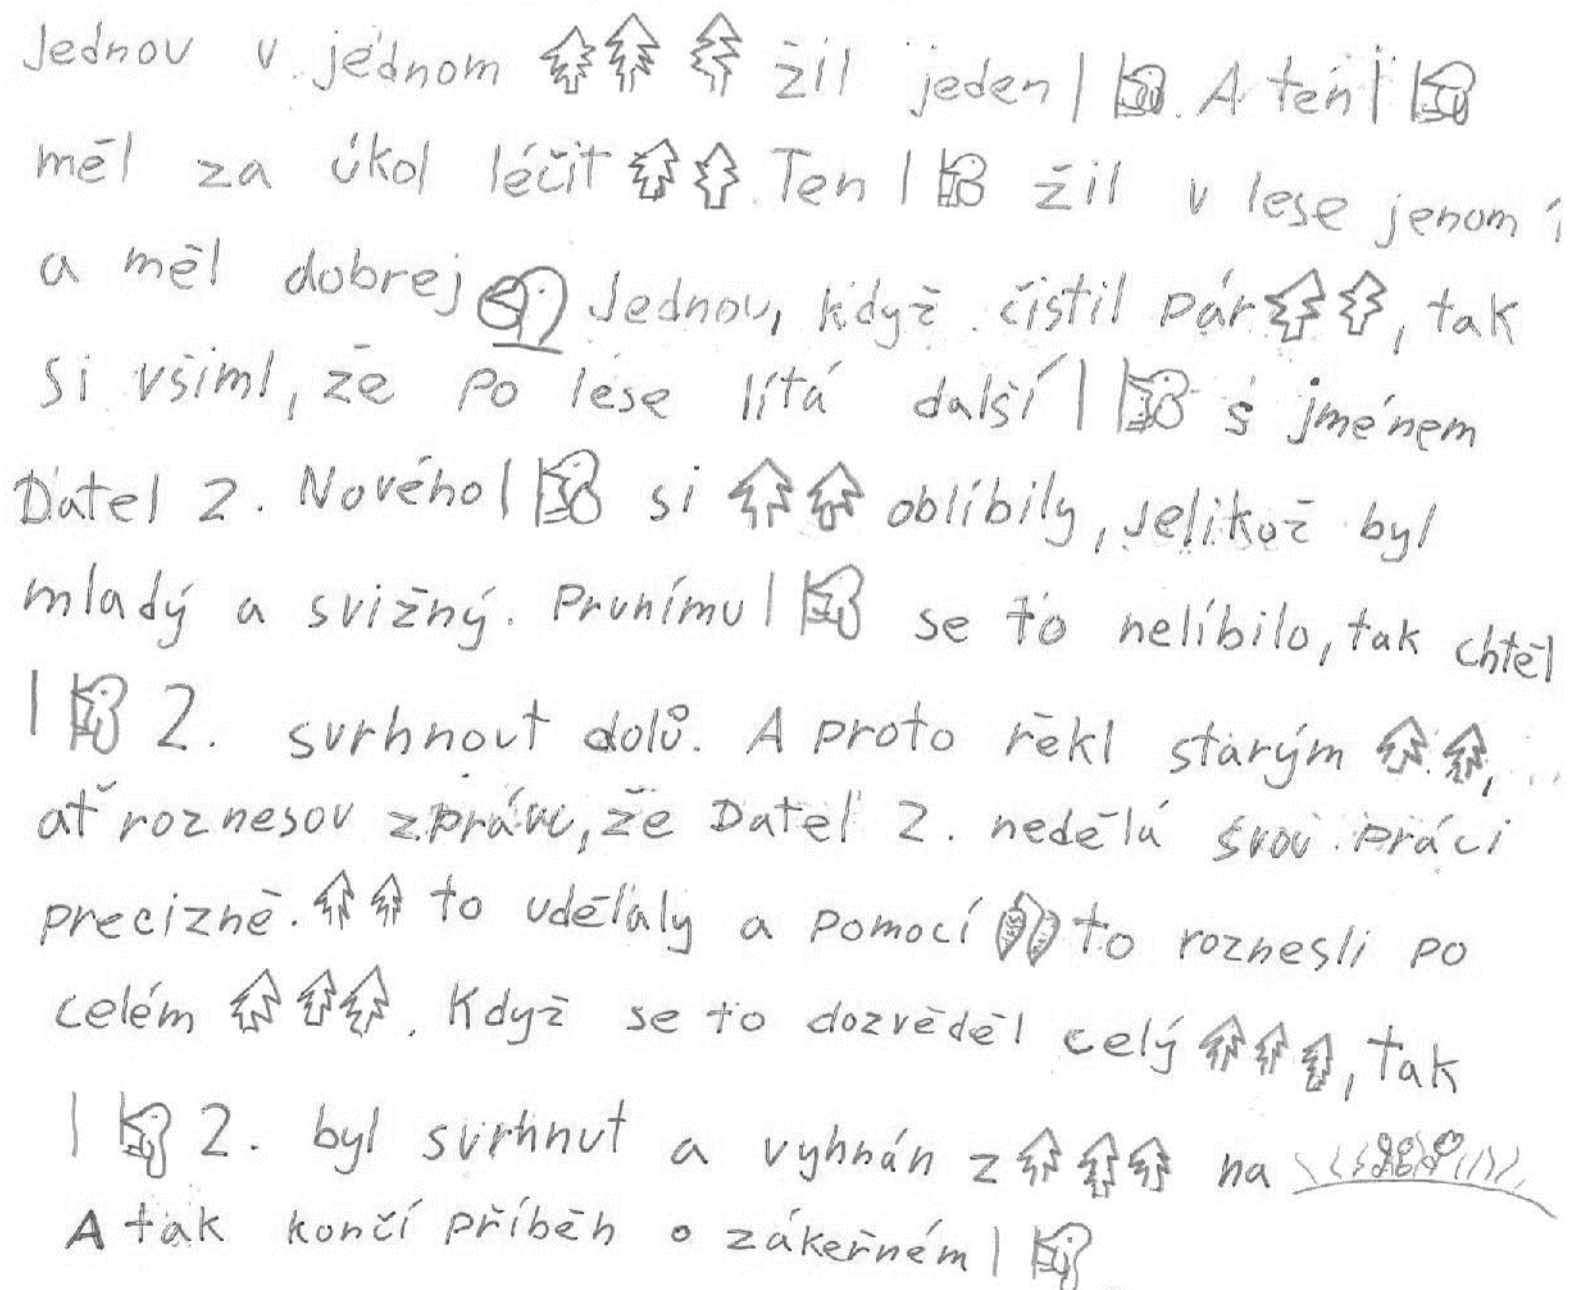 Jednou v jednom žil jeden. A ten
měl za úkol léčit. Ten žil v lese jenom
a měl dobrej Jednou, když čistil pár, tak
si všiml, že po lese lítá další s jménem
Datel 2. Nového si oblíbily, jelikož byl
mladý a svižný. Prvnímu se to nelíbilo, tak chtěl
2. svrhnout dolů. A proto řekl starým,
ať roznesou zprávu, že Datel 2. nedělá svou práci
precizně. to udělaly a pomocí to roznesli po
celém. Když se to dozvěděl celý, tak
2. byl svrhnut a vyhnán z na
A tak končí příběh o zákeřném